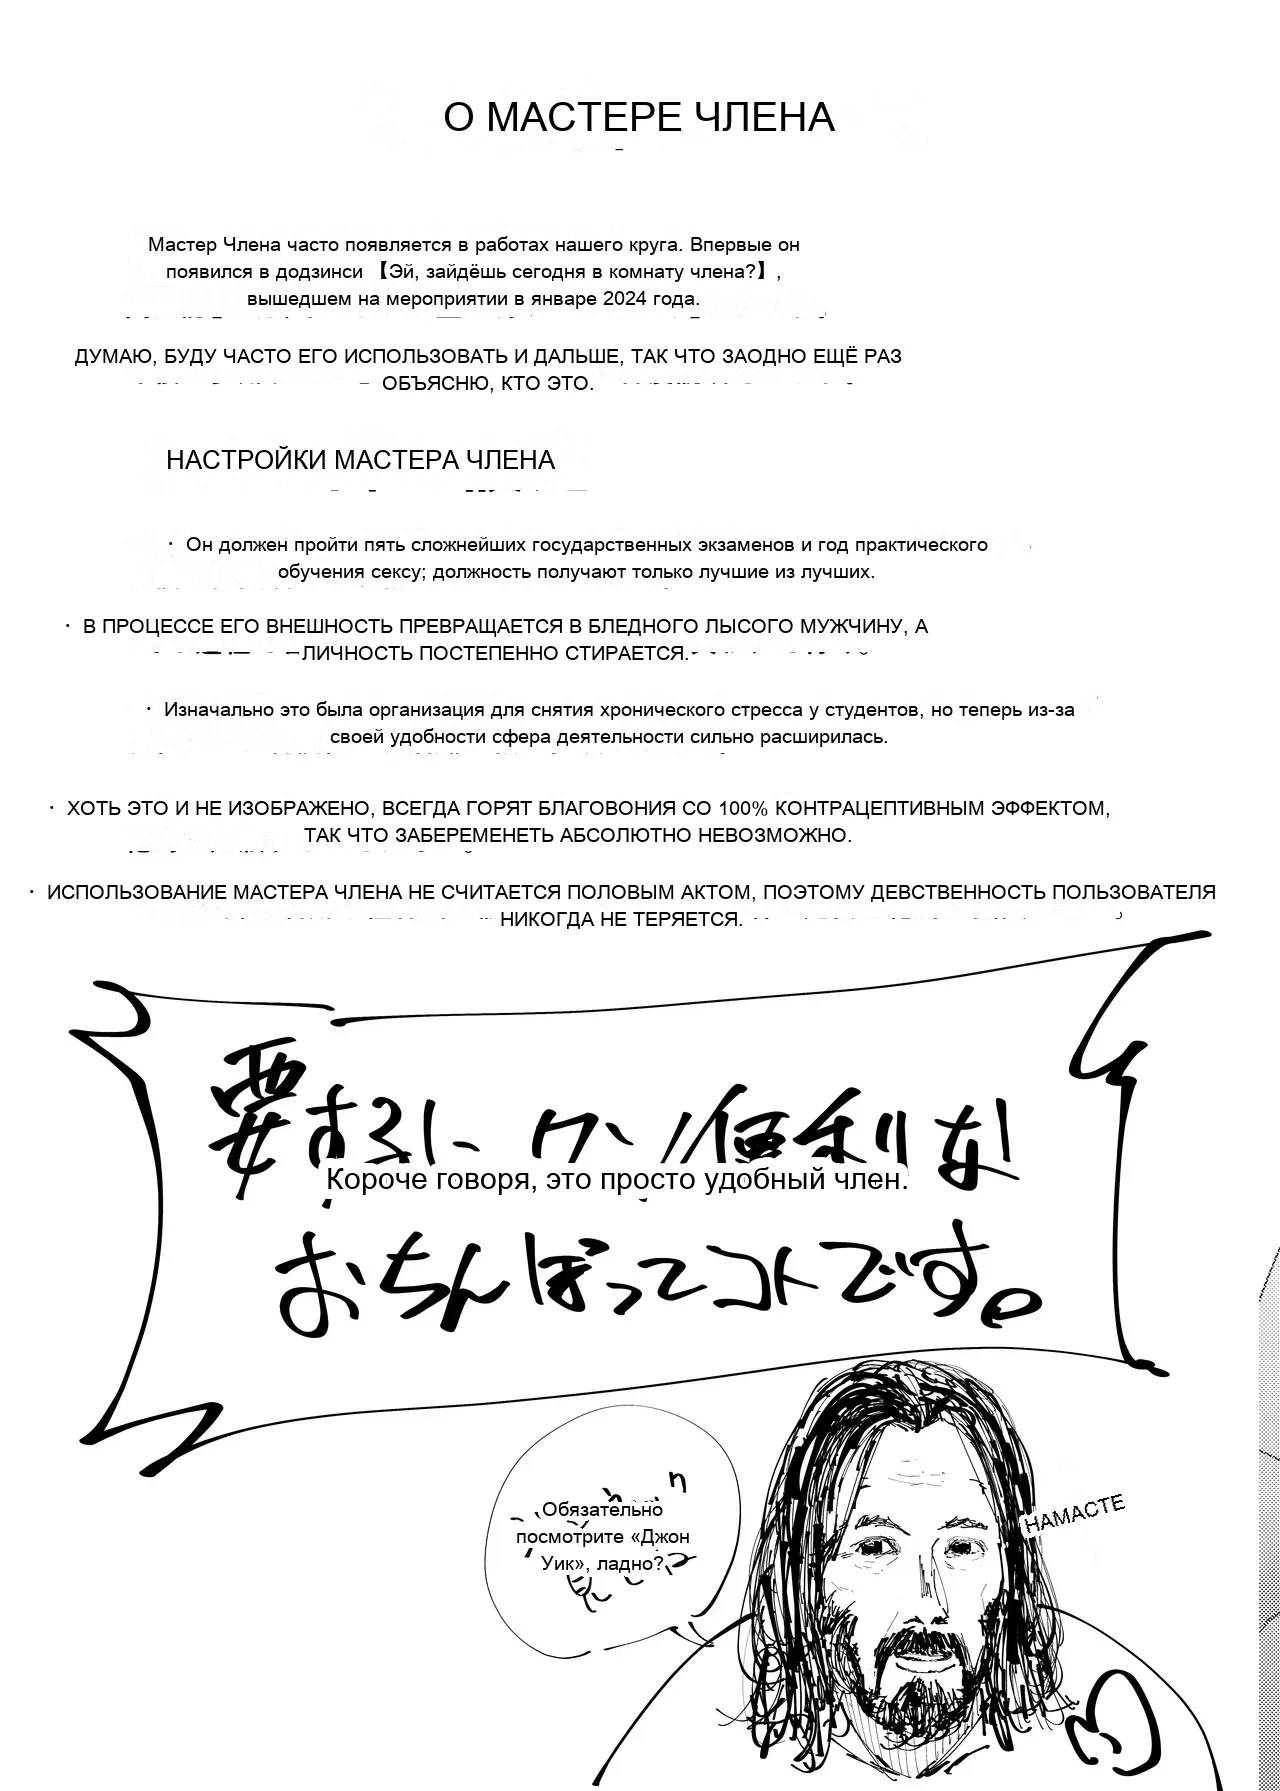 О МАСТЕРЕ ЧЛЕНА
Мастер Члена часто появляется в работах нашего круга. Впервые он
появился в додзинси 【Эй, зайдёшь сегодня в комнату члена?】,
вышедшем на мероприятии в январе 2024 года.
ДУМАЮ, БУДУ ЧАСТО ЕГО ИСПОЛЬЗОВАТЬ И ДАЛЬШЕ, ТАК ЧТО ЗАОДНО ЕЩЁ РАЗ
ОБЪЯСНЮ, КТО ЭТО.
НАСТРОЙКИ МАСТЕРА ЧЛЕНА
・ Он должен пройти пять сложнейших государственных экзаменов и год практического
обучения сексу; должность получают только лучшие из лучших.
・ В ПРОЦЕССЕ ЕГО ВНЕШНОСТЬ ПРЕВРАЩАЕТСЯ В БЛЕДНОГО ЛЫСОГО МУЖЧИНУ, А
ЛИЧНОСТЬ ПОСТЕПЕННО СТИРАЕТСЯ.
・ Изначально это была организация для снятия хронического стресса у студентов, но теперь из-за
своей удобности сфера деятельности сильно расширилась.
・ ХОТЬ ЭТО И НЕ ИЗОБРАЖЕНО, ВСЕГДА ГОРЯТ БЛАГОВОНИЯ СО 100% КОНТРАЦЕПТИВНЫМ ЭФФЕКТОМ,
ТАК ЧТО ЗАБЕРЕМЕНЕТЬ АБСОЛЮТНО НЕВОЗМОЖНО.
・ ИСПОЛЬЗОВАНИЕ МАСТЕРА ЧЛЕНА НЕ СЧИТАЕТСЯ ПОЛОВЫМ АКТОМ, ПОЭТОМУ ДЕВСТВЕННОСТЬ ПОЛЬЗОВАТЕЛЯ
НИКОГДА НЕ ТЕРЯЕТСЯ.
要するに、ただ便利な
Короче говоря, это просто удобный член.
おちんぽってコトです。
Обязательно
посмотрите «Джон
Уик», ладно?
НАМАСТЕ